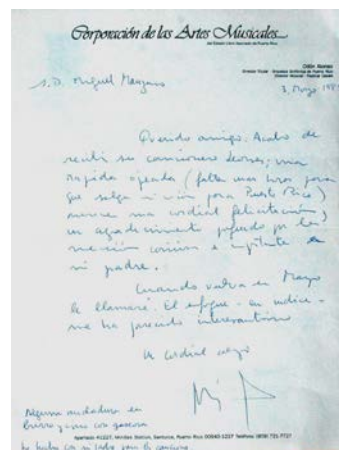 Corporación de las Artes Musicales
del Estado Libre Asociado de Puerto Rico
Odón Alonso
Director Titular - Orquesta Sinfónica de Puerto Rico
Director Musical - Festival Casals
S.D. Miguel Manzano
3, Mayo
Querido amigo: Acabo de
recibir su cancionero leonés; una
rápida ojeada (faltan unas horas para
que salga mi avión para Puerto Rico)
merece mi cordial felicitación y
un agradecimiento profundo por la
mención cariñosa e importante de
mi padre.
Cuando vuelva en Mayo
le llamaré. El enfoque - en índice -
me ha parecido interesantísimo
Un cordial abrazo
en
con gaseosa
Apartado 41227, Minillas Station, Santurce, Puerto Rico 00940-1227 Teléfono (809) 721-7727